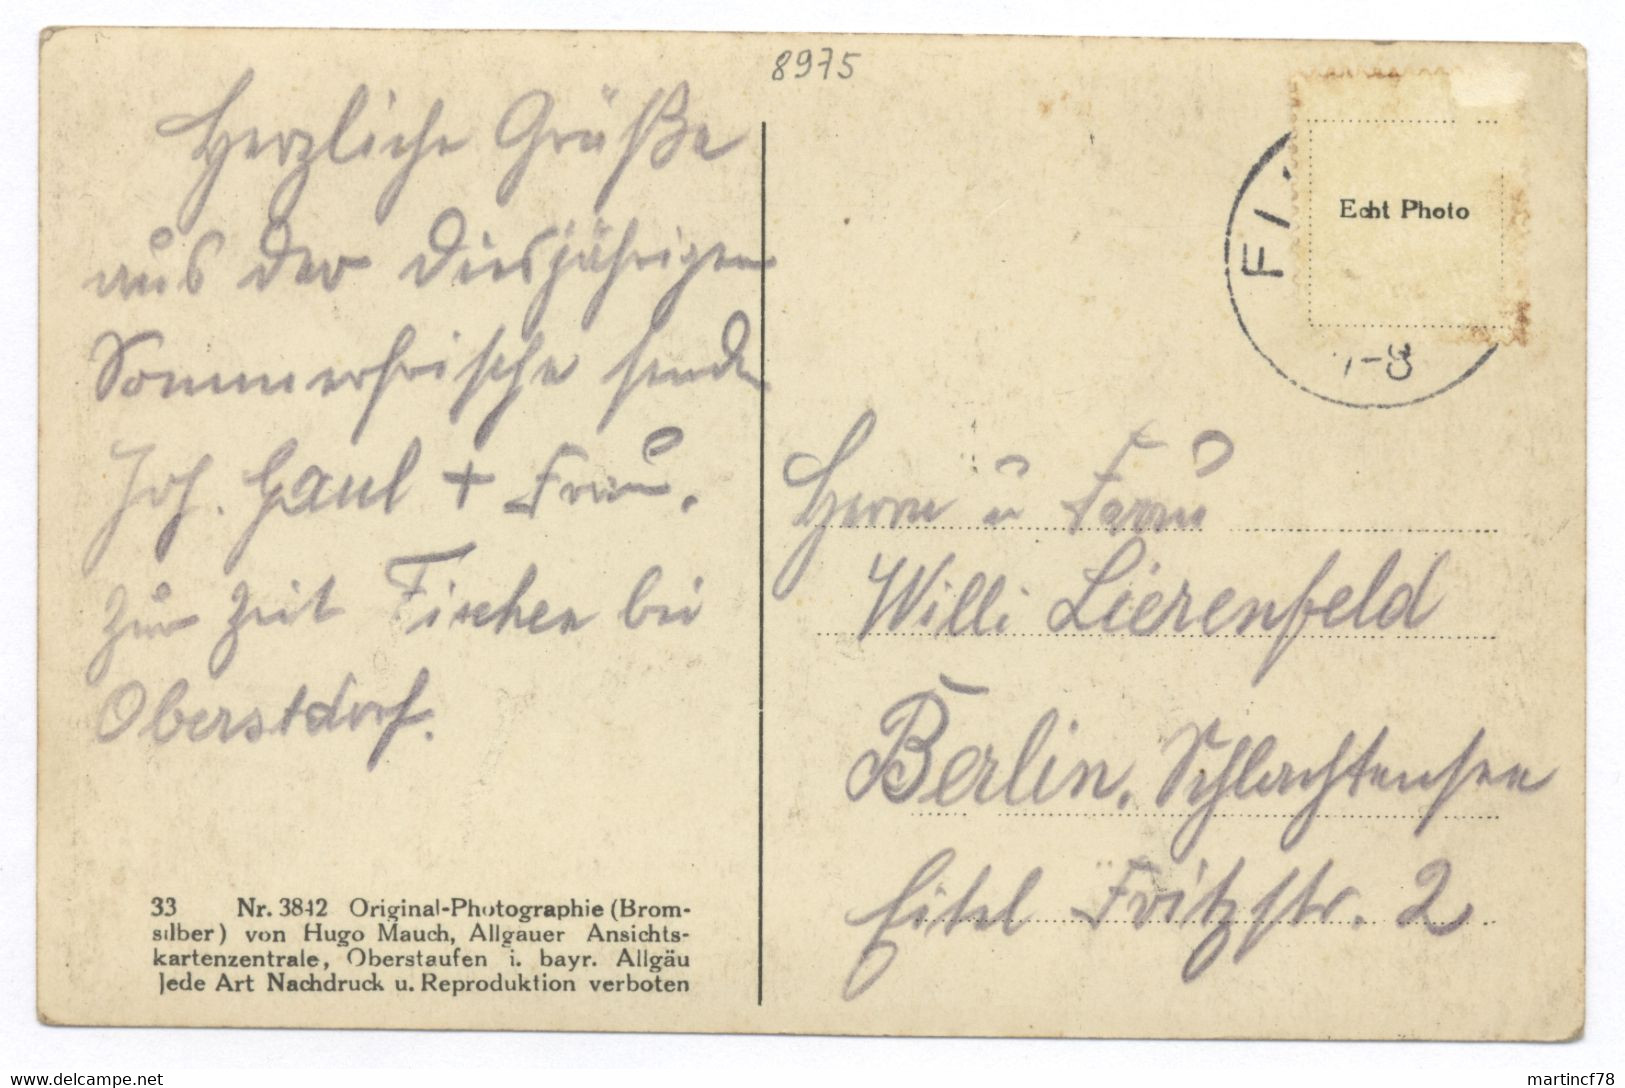 8975
Herzliche Grüße
aus der diesjährigen
Sommerfrische senden
Joh. Gaul + Frau.
zur Zeit Fischen bei
Oberstdorf.
33 Nr. 3842 Original-Photographie (Brom-
silber) von Hugo Mauch, Allgäuer Ansichts-
kartenzentrale, Oberstaufen i. bayr. Allgäu
Jede Art Nachdruck u. Reproduktion verboten
Echt Photo
FI
7-8
Herrn u Frau
Willi Lierenfeld
Berlin. Schlachtensee
Eitel Fritzstr. 2
www.delcampe.net
martincf78